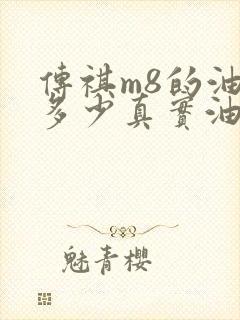 傳祺m8的油
多少真實油
魅青櫻